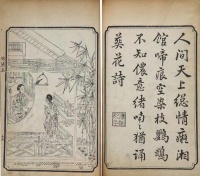 人間天上總情癡湘
館啼痕空染枝鸚鵡
不知儂意緒喃猶誦
葬花詩